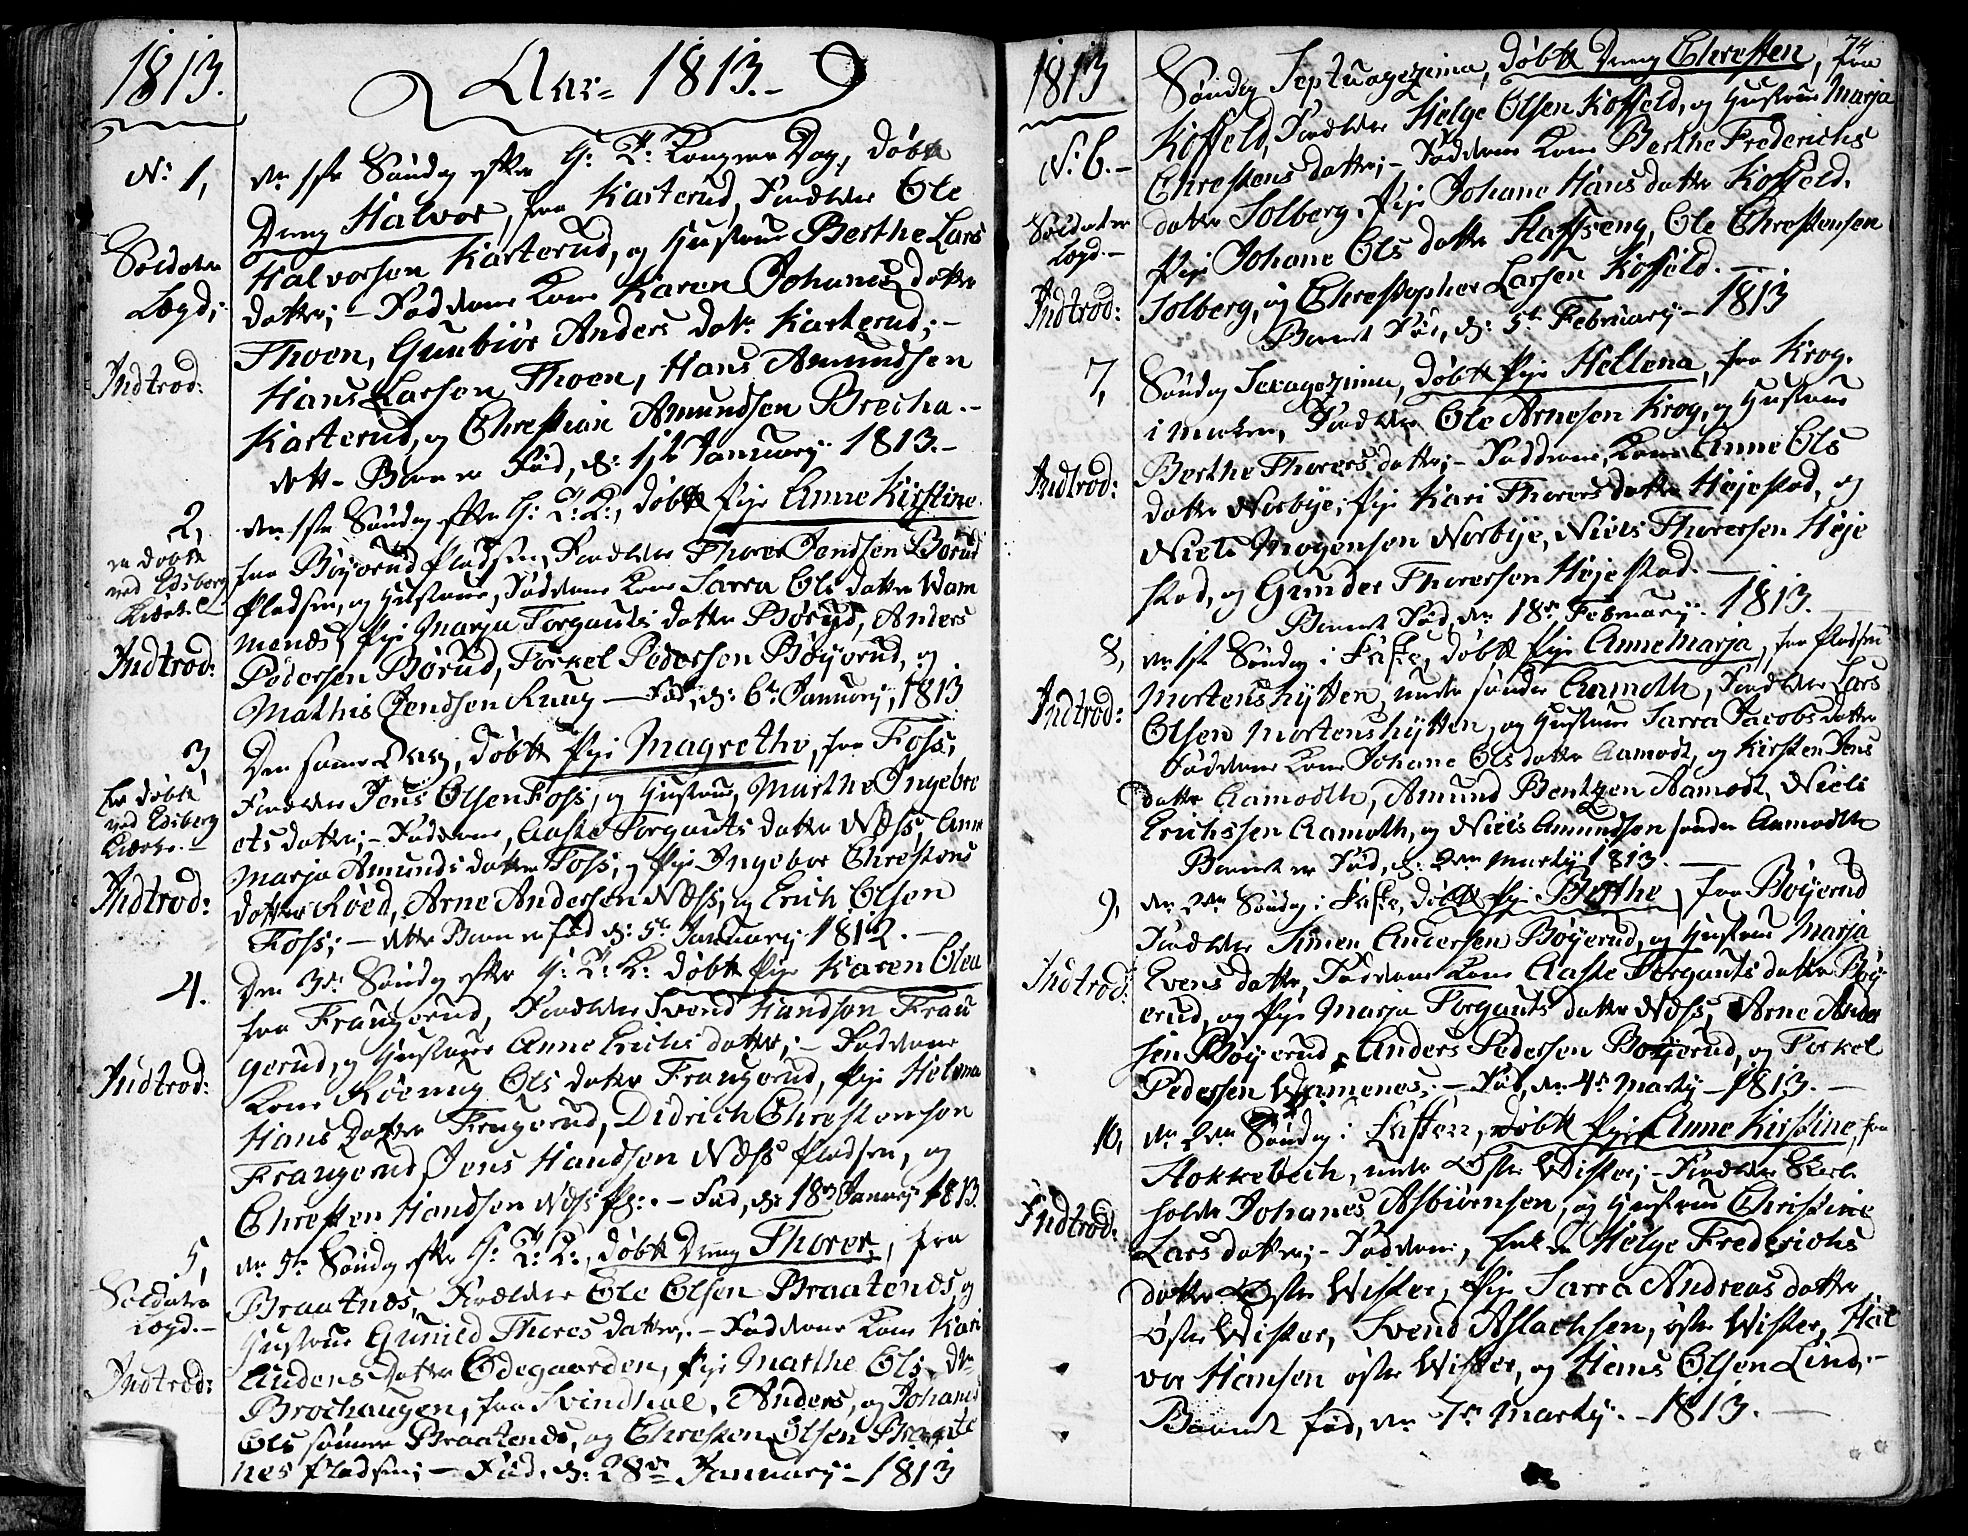 1813.
Aar= 1813.-
N: 1,
den 1ste Søndag efter H: 3: Konger Dag, døbt
Dreng Halvor, fra Karterud, Forældre Ole
Halvorsen Karterud, og Hustrue Berthe Lars
datter;- Faddere Kone Karen Johanes datter
Thoen, Gunbiør Anders dat. Karterud;-
Hans Larsen Thoen, Hans Amundsen
Karterud, og Chrestian Amundsen Brecha.-
dett- Barn er Fød, d: 1ste January 1813.-
Soldater
Lægd;
Indtrod:
2,
er døbt
ved Edsberg
Kirke
Indtrod:
den 1ste Søndag efter H: 3: K:, døbt Pige Anne Kirstine
fra Böyerud Pladsen, Forældre Thore Jendsen Børud
Pladsen, og Hustrue, Faddere Kone Sarra Ols datter Wam
menæs, Pige Marja Torgauts datter Børud, Anders
Pedersen Børud, Torkel Pedersen Böyerud, og
Mathis Jendsen Ruug - Fød, d: 6te January, 1813
3,
Er døbt
ved Edsberg
Kirke.-
Indtrod:
Den samme Dag, døbt Pige Magrethe, fra Foss,
Forældre Jens Olsen Foss, og Hustrue, Marthe Ingebre
ets datter;- Faddere, Aaste Torgauts datter Næss, Anne
Marja Amunds datter Foss, og Pige Ingebor Chrestens
datter Röed, Arne Andersen Næss, og Erich Olsen
Foss;- dette Barn er fød d: 5te January 1812.-
4.
Indtrod:
Den 3de Søndag efter H: 3: K: døbt Pige Karen Olea
fra Fraugerud, Forældre Svend Handsen Frau
gerud, og Hustrue Anne Erichs datter;- Faddere
Kone Röennug Ols datter Fraugerud, Pige Helena
Hans Datter Fraugerud, Didrich Chrestensen
Fraugerud, Jens Handsen Næss Pladsen, og
Chresten Handsen Næss Pl:.- Fød, d: 18de January 1813.
5,
Soldater
Lægd.-
Indtrod:
den 5te Søndag efter H: 3: K:, døbt Dreng Thorer, fra
Braatnæs, Forældre Ole Olsen Braatenæs, og
Hustrue Gunild Thores datter.- Faddere Kone Kari
Audens datter Ødegaarden, Pige Marthe Ols dr
Brochaugen, fra Svindhal, Anders, og Johanes
Ols sønner Braatenæs, og Chresten Olsen Braate
næs Pladsen;- Fød. d: 28de January- 1813
1813
74
N: 6.-
Soldater
Lægd.-
Indtrod:
Søndag Septuagezima, døbt Dreng Chresten, fra
Koffeld, Forældre Helge Olsen Koffeld, og Hustrue Marja
Chrestens datter;- Faddere Kone Berthe Frederichs
datter Solberg, Pige Johane Hans datter Koffeld,
Pige Johane Ols datter Haffseng, Ole Chrestensen
Solberg, og Chrestopher Larsen Koffeld.-
Barnet Fød, d: 5te February- 1813
7,
Indtrod:
Søndag Sexagezima, døbt Pige Hellena, fra Krog.
i marken, Forældre Ole Arnesen Krog, og Hustrue
Berthe Thorers datter;- Faddere, Kone Anne Ols
datter Norbye, Pige Kari Thorers datter Højestad, og
Niels Mogensen Norbye, Niels Thorersen Høje
stad, og Gunder Thorersen Højestad.-
Barnet Fød, den 18de February. 1813.-
8,
Indtrod:
den 1ste Søndag i Faste, døbt Pige Anne Marja, fra Pladsen
Mortenshytten, under sønder Aamoth, Forældre Lars
Olsen Mortenshytten, og Hustrue Sarra Jacobs datter
Faddere Kone Johane Ols datter Aamodt, og Kirsten Jens
datter Aamodth, Amund Bentzen Aamodt, Niels
Erichssen Aamoth, og Niels Amundsen sønder Aamodth
Barnet er Fød, d: 2den Marty 1813.-
9,
Indtrod:
den 2den Søndag i Faste, døbt Pige Berthe, fra Böyerud
Forældre Simen Andersen Böyerud, og Hustrue Marja
Evens datter, Faddere Kone Aaste Torgauts datter Böy
erud, og Pige Marja Torgauts datter Næss, Arne Ander
sen Böyerud, Anders Pedersen Böyerud, og Torkel
Pedersen Wamenæs.- Fød, den 4de Marty- 1813.-
10,
Indtrod:
den 2den Søndag i Fasten, døbt Pige Anne Kirstine, fra
Hokkebech, under Øster Wister;- Forældre
holder Johanes Asbiørensen, og Hustrue Christine
Lars datter;- Faddere, Enke Helge Frederichs
datter Øster Wister, Pige Sarra Andreas datter
Øster Wister, Svend Aslachsen, øster Wister, Hal
vor Hansen øster Wister, og Hans Olsen Lind.-
Barnet fød, den 7de Marty.- 1813.-